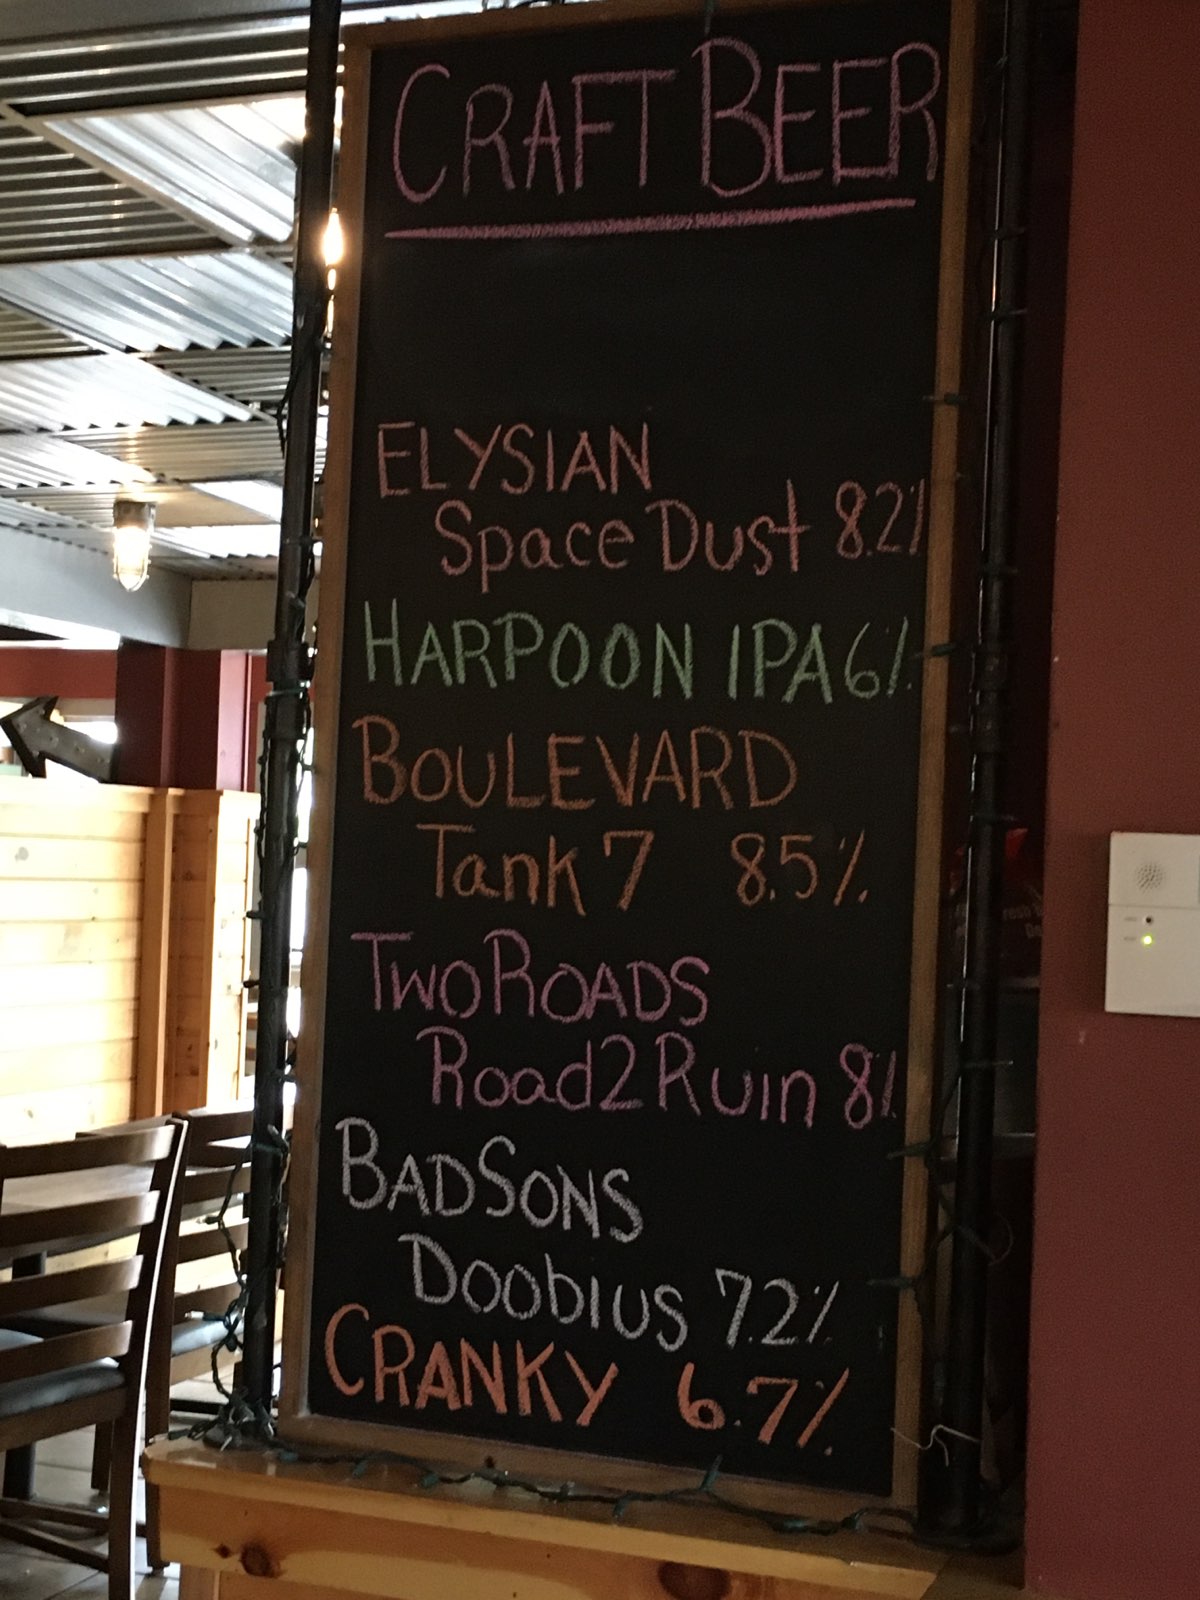 CRAFT BEER
ELYSIAN
Space Dust 8.2%
HARPOON IPA 6%
BOULEVARD
Tank 7 8.5%
TWO ROADS
Road 2 Ruin 8%
BADSONS
Doobius 7.2%
CRANKY 6.7%